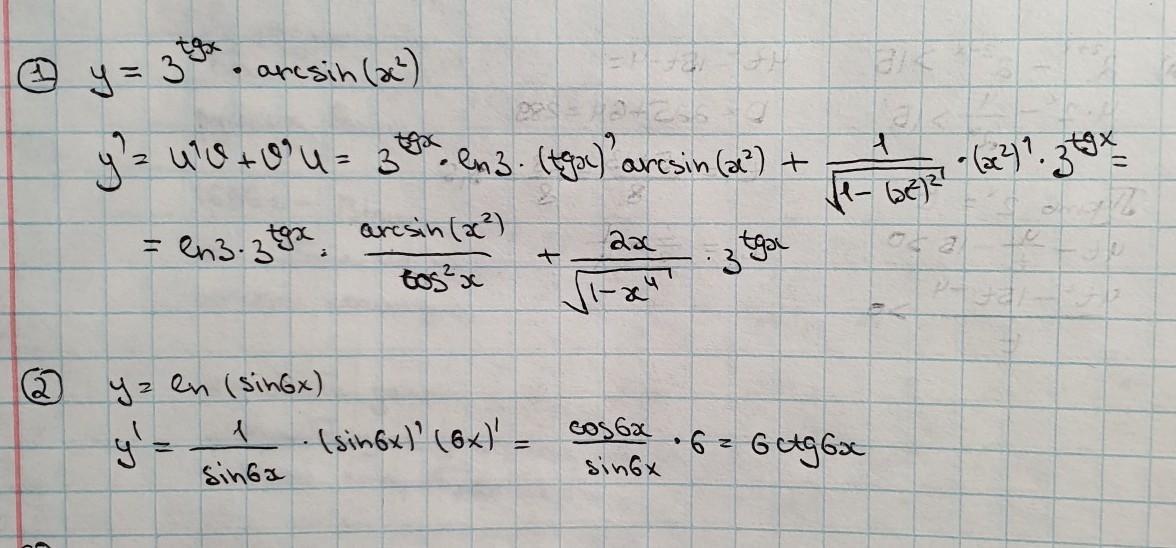 ① y = 3^tgx · arcsin(x²)
y' = u'v + v'u = 3^tgx · ln3 · (tgx)' arcsin(x²) + 1/√(1-(x²)²) · (x²)' · 3^tgx =
= ln3 · 3^tgx · arcsin(x²)/cos²x + 2x/√(1-x⁴) · 3^tgx
② y = ln (sin6x)
y' = 1/sin6x · (sin6x)' (6x)' = cos6x/sin6x · 6 = 6ctg6x